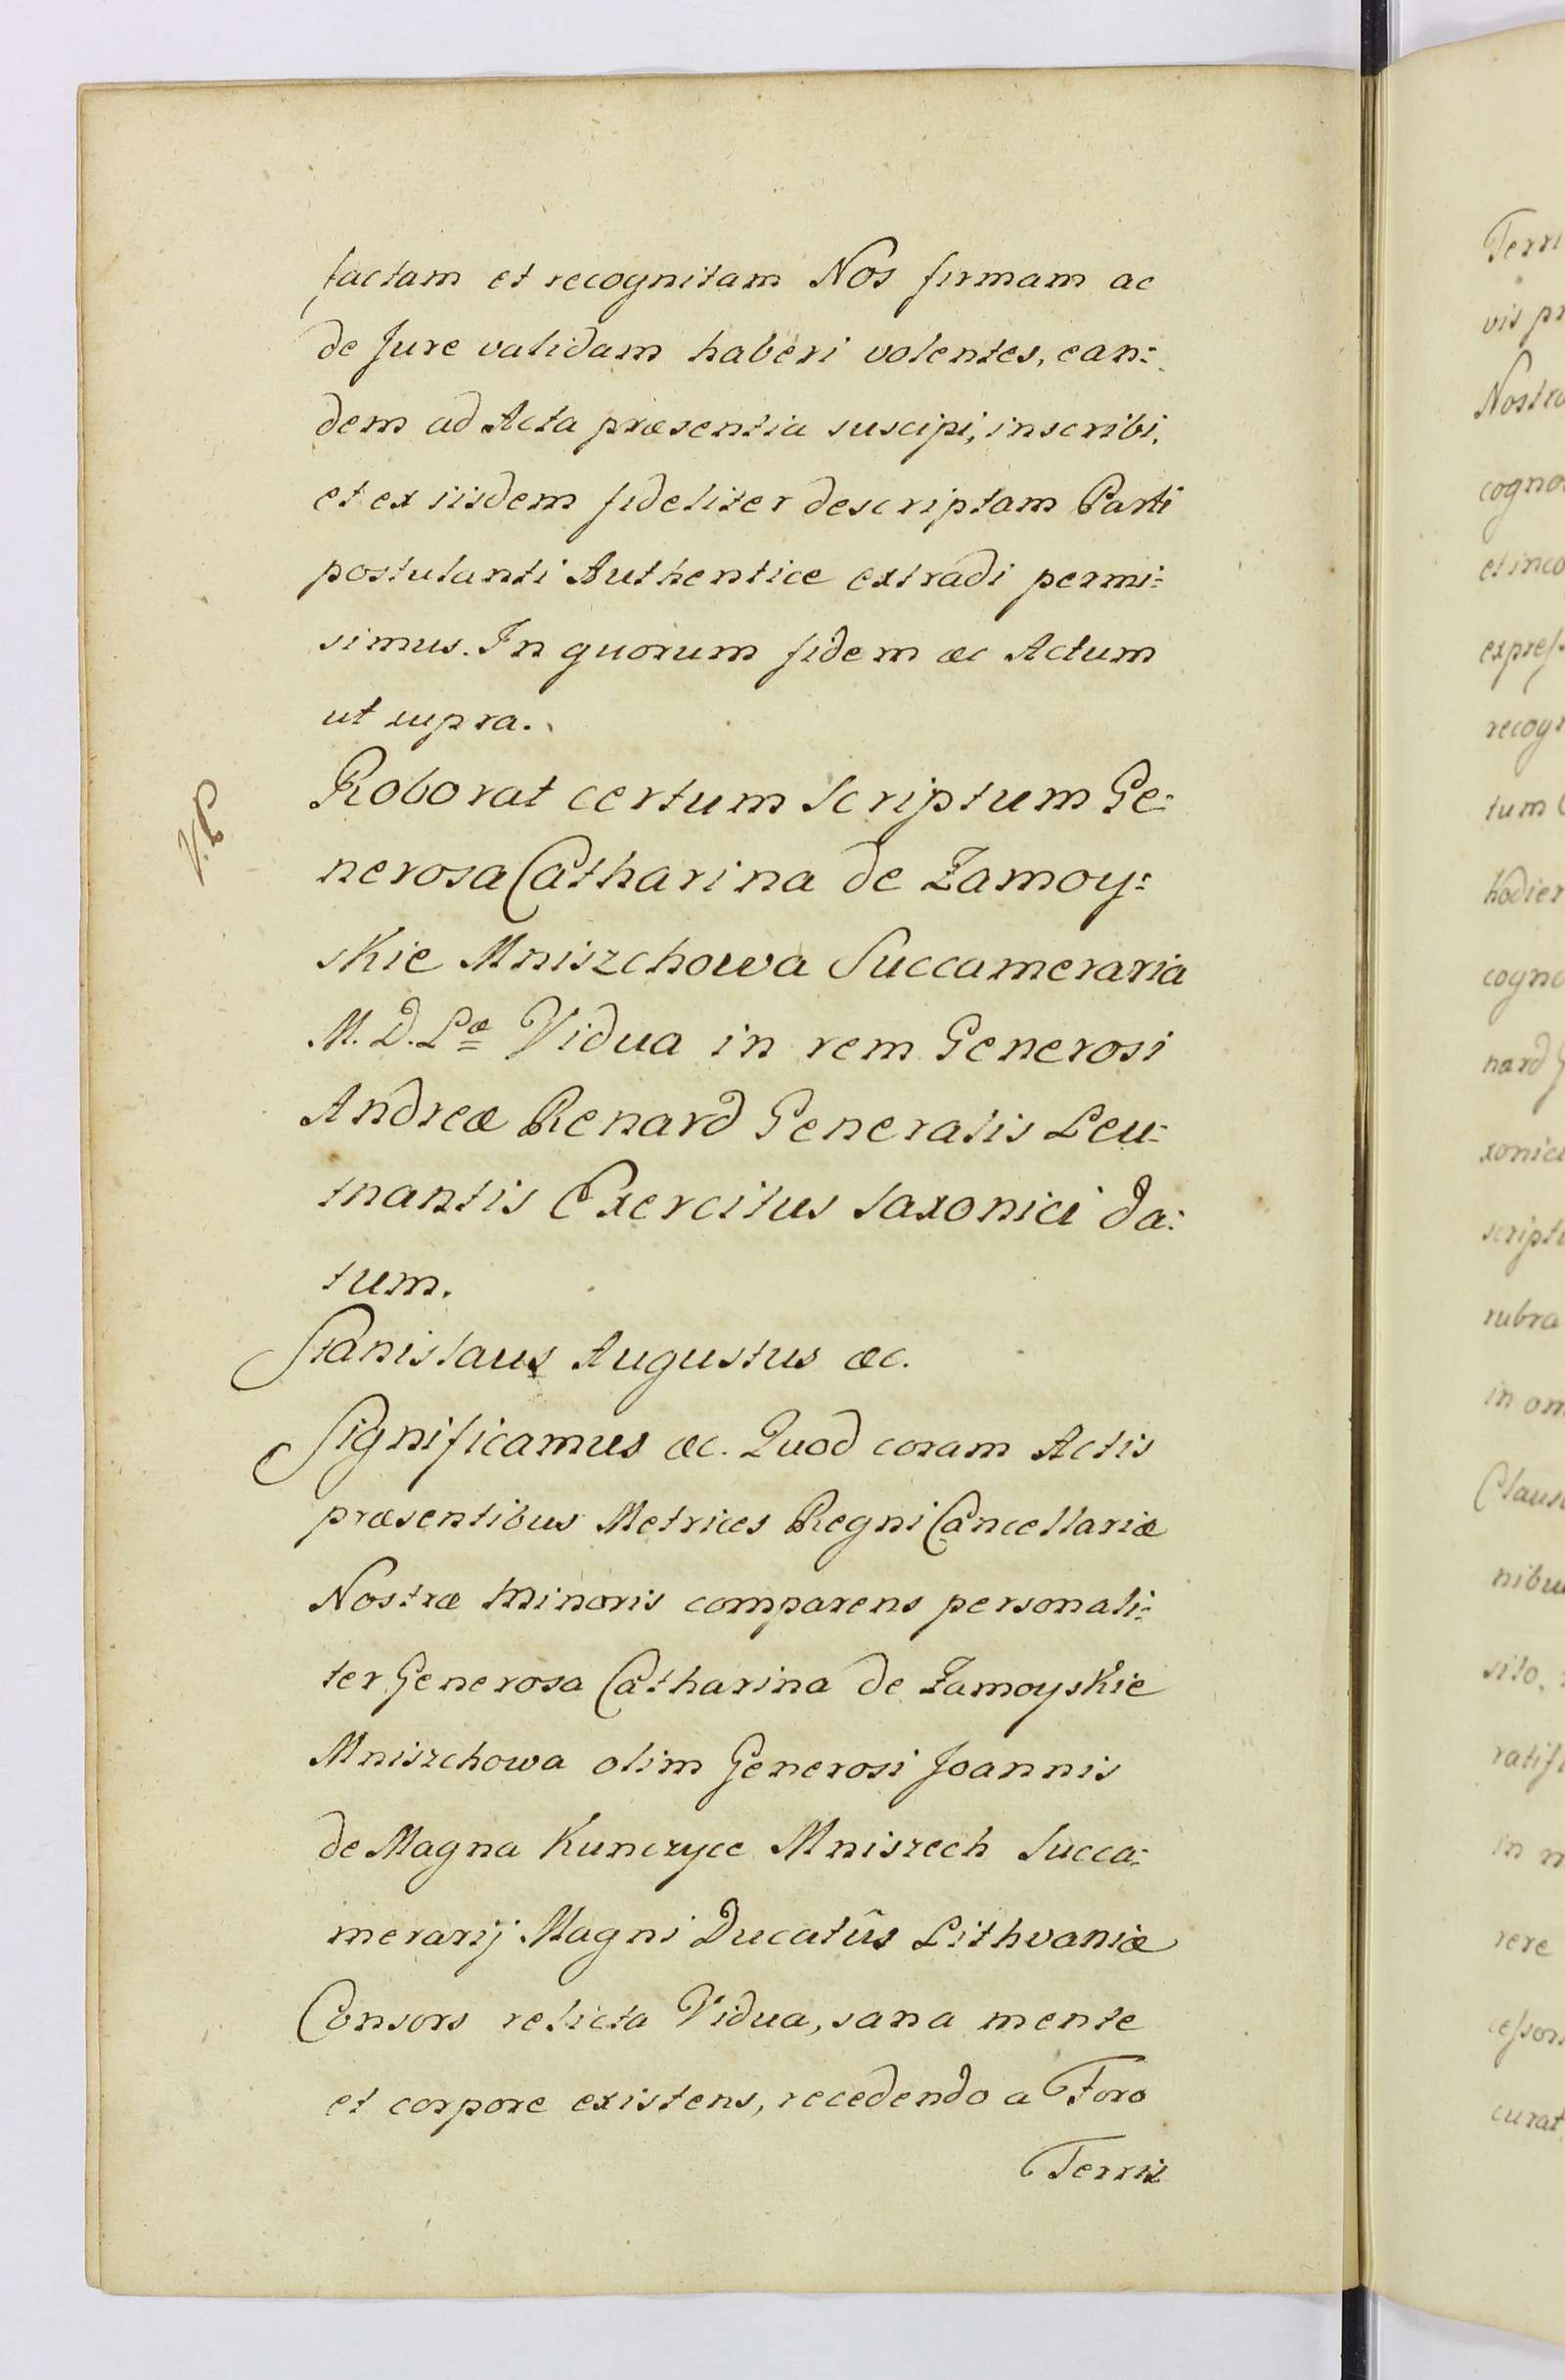 factam et recognitam Nos firmam ac
de Jure validam haberi volentes, ean:
dem ad Acta præsentia suscipi, inscribi,
et ex iisdem fideliter descriptam Parti
postulanti Authentice extradi permi:
simus. In quorum fidem æc Actum
ut supra.
Roborat certum Scriptum Ge:
nerosa Catharina de Zamoy:
skie Mniszchowa Succameraria
M. D. Læ Vidua in rem Generosi
Andreæ Renard Generalis Leu:
tnantis Exercitus Saxonici da:
tum.
Stanislaus Augustus æc.
Significamus æc. Quod coram Actis
præsentibus Metrices Regni Cancellariæ
Nostræ Minoris comparens personali:
ter Generosa Catharina de Zamoyskie
Mniszchowa olim Generosi Joannis
de Magna Kunczyce Mniszech Succa:
merarij Magni Ducatûs Lithvaniæ
Consors relicta Vidua, sana mente
et corpore existens, recedendo a Foro
Terris
Terri
vis pr
Nostra
cogno
et inco
expres
recog
tum
hodier
cogno
nard
xonici
scripti
rubra
in om
Clausu
nibu
sito,
ratifi
in
rere
cessor
curat